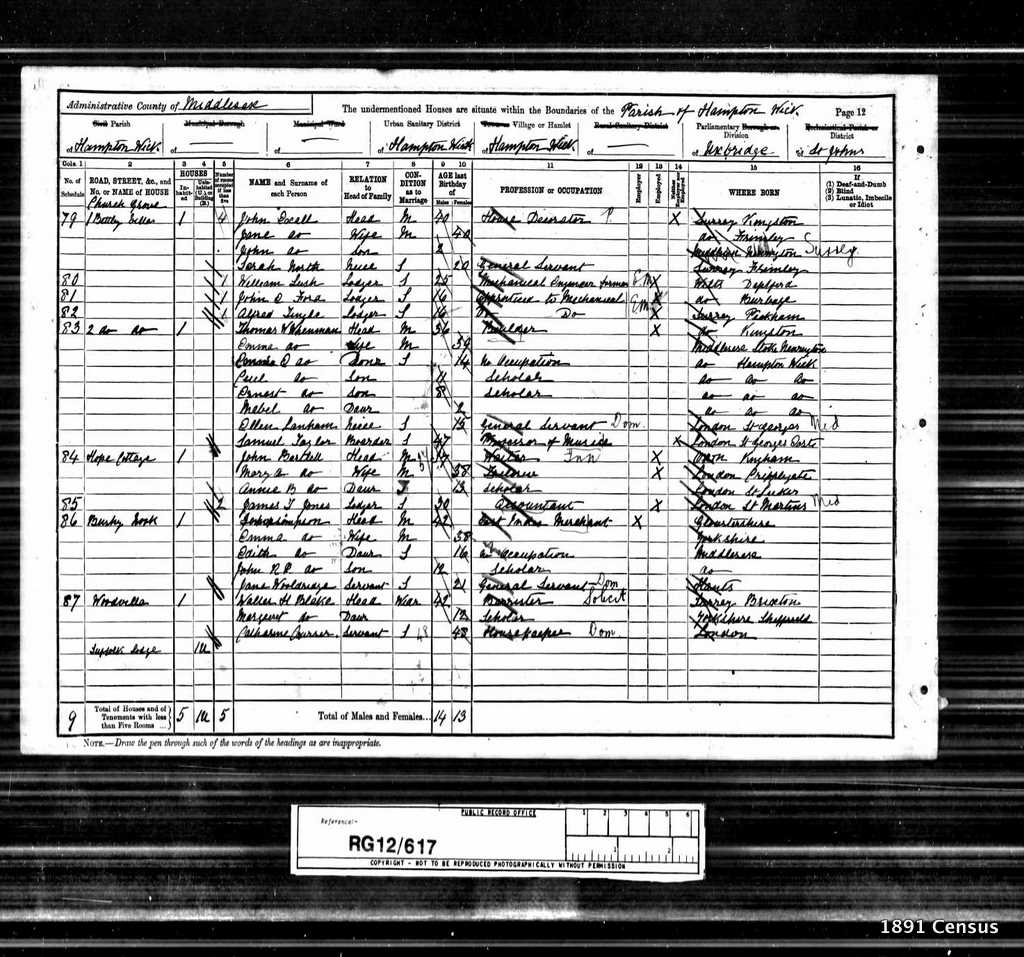 Administrative County of Middlesex
The undermentioned Houses are situate within the Boundaries of the Parish of Hampton Wick
Page 12
Civil Parish of Hampton Wick
Municipal Borough of
Municipal Ward of
Urban Sanitary District of Hampton Wick
Town or Village or Hamlet of Hampton Wick
Rural Sanitary District of
Parliamentary Borough or Division of Uxbridge
Ecclesiastical Parish or District of St Johns
Cols. 1 2 3 4 5 6 7 8 9 10 11 12 13 14 15 16
No. of Schedule
ROAD, STREET, &c., and No. or NAME of HOUSE
HOUSES
Inhabited
Number of rooms occupied if less than five
NAME and Surname of each Person
RELATION to Head of Family
CONDITION as to Marriage
AGE last Birthday of
Males Females
PROFESSION or OCCUPATION
Employer
Employed
Neither
WHERE BORN
If (1) Deaf-and-Dumb (2) Blind (3) Lunatic, Imbecile or Idiot
Church Grove
79 1 Villas 1 4 John Head M 40 House Decorator X Surrey Kingston
Jane do Wife M 40 do Frimley
John do Son 2 Sussex
Sarah North Neice S 20 General Servant Surrey Frimley
80 1 William Lodger S 25 Mechanical Engineer X Deptford
81 1 John Lodger S 16 Apprenticed to Mechanical do Burbage
82 1 Alfred Lodger S 16 Do Do X Surrey Peckham
83 2 do do 1 Thomas W Head M 36 Builder X do Kingston
Emma do Wife M 39 Stoke Newington
do S 14 No Occupation do Hampton Wick
do Son 11 Scholar do do do
Ernest do Son 8 Scholar do do do
Mabel do Daur 2 do do do
Ellen Lanham Neice S 15 General Servant Dom London St Georges Mid
Samuel Taylor Boarder S 47 of X London St Georges
84 Hope Cottage 1 John Bartlett Head M Waiter Inn X
Mary A do Wife M 38 London Cripplegate
Annie B do Daur 13 Scholar London St Lukes
85 2 James T Jones Lodger S 30 Accountant X London St Martins Mid
86 Bushy 1 Head M 42 East India Merchant X Gloustershire
Emma do Wife M 38 Yorkshire
Edith do Daur S 16 Occupation
John do Son 12 Scholar do
Jane Wooldridge Servant S 21 General Servant Dom Hants
87 Woodville 1 Walter H Blake Head Widr 43 Barrister Solicit Surrey Brixton
Margaret do Daur 12 Scholar Yorkshire Sheffield
Catharine Servant S 48 Housekeeper Dom London
Suffolk Lodge 1U
9 Total of Houses and of Tenements with less than Five Rooms 5 1U 5 Total of Males and Females... 14 13
NOTE.—Draw the pen through such of the words of the headings as are inappropriate.
PUBLIC RECORD OFFICE
Reference:-
RG12/617
1 2 3 4 5 6
1 2
COPYRIGHT - NOT TO BE REPRODUCED PHOTOGRAPHICALLY WITHOUT PERMISSION
1891 Census